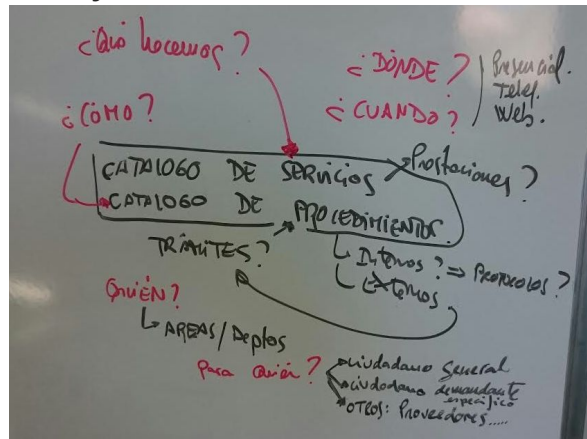 ¿Qué hacemos?
¿DÓNDE?
¿CUANDO?
Presencial.
Telef.
Web.
¿CÓMO?
CATALOGO DE SERVICIOS
Prestaciones?
CATALOGO DE PROCEDIMIENTOS.
TRÁMITES?
Internos? ⇒ PROTOCOLOS?
EXternos
QUIÉN?
AREAS/Deptos
Para Quién?
Ciudadano General
Ciudadano demandante
específico
OTROS: Proveedores.....